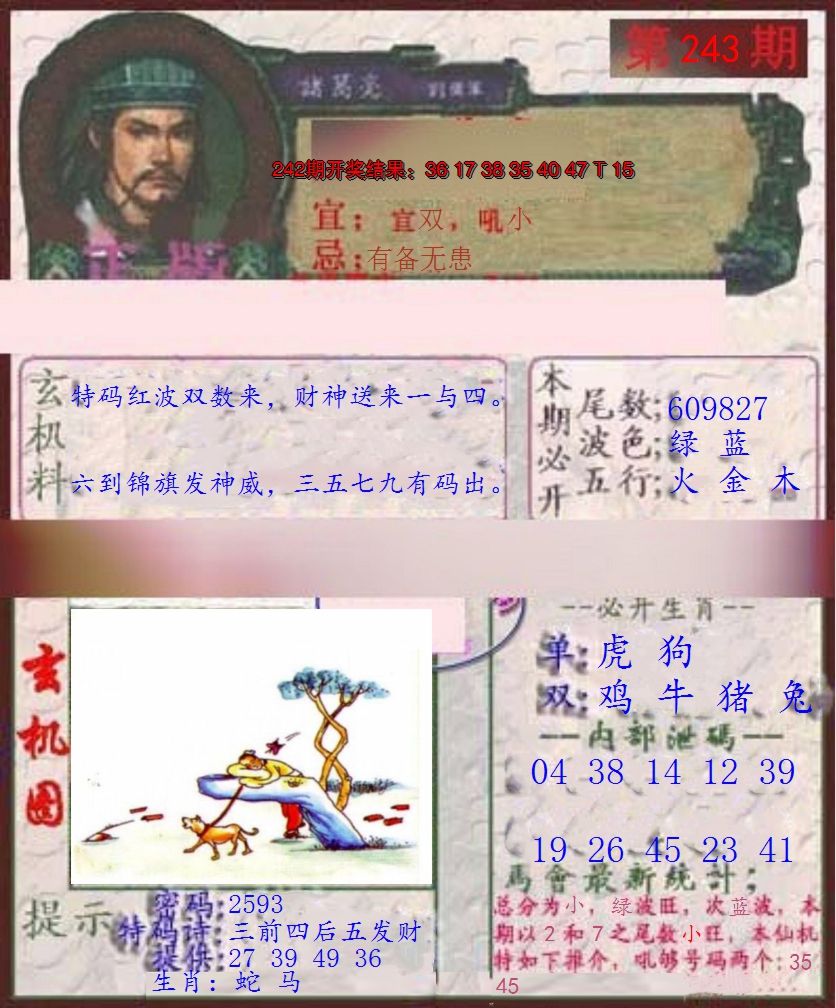 第 243 期
諸葛亮
242期开奖结果：36 17 38 35 40 47 T 15
宜：宜双，吼小
忌：有备无患
正版
玄机料
特码红波双数来，财神送来一与四。
六到锦旗发神威，三五七九有码出。
本期必开
尾数；609827
波色；绿 蓝
五行；火 金 木
玄机图
--必开生肖--
单：虎 狗
双：鸡 牛 猪 兔
一内部泄碼一
04 38 14 12 39
19 26 45 23 41
馬會最新統計；
总分为小，绿波旺，次蓝波，本
期以2和7之尾数小旺，本仙机
特如下推介，吼够号码两个：35
45
提示
密码：2593
特码诗：三前四后五发财
提供：27 39 49 36
生肖：蛇 马